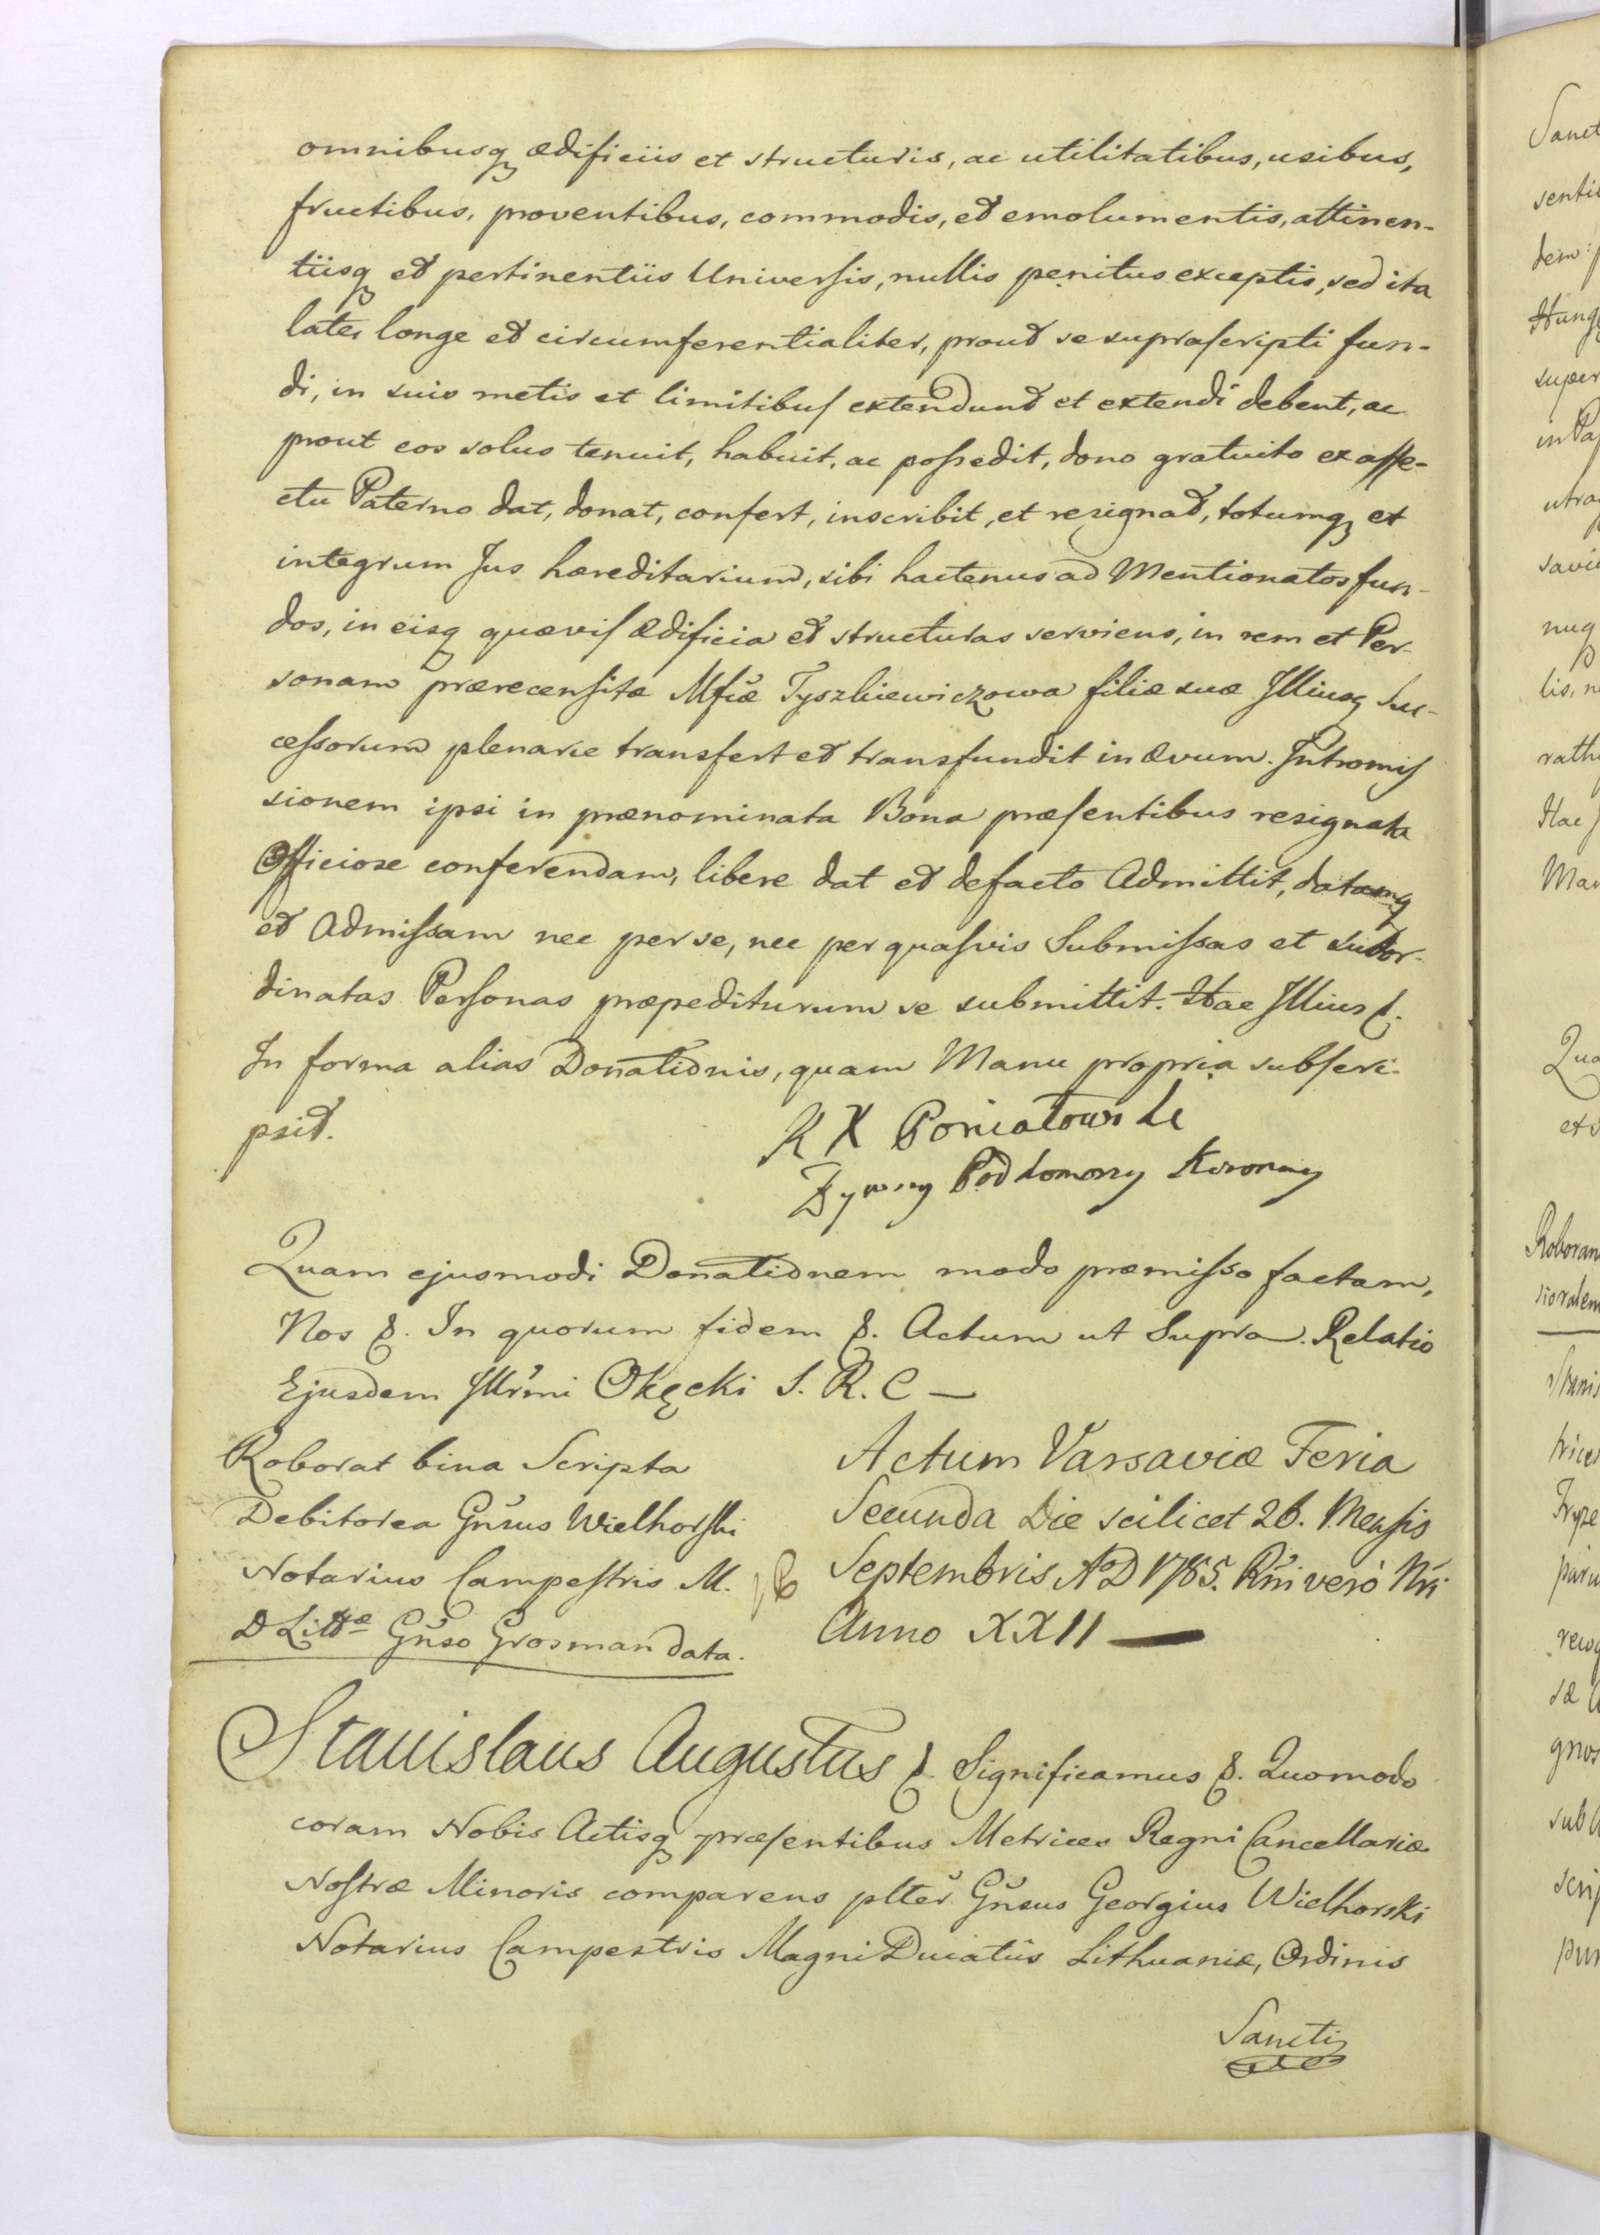 omnibusq ædificiis et structuris, ac utilitatibus, usibus,
fructibus, proventibus, commodis, et emolumentis, attinen-
tiisq et pertinentiis Universis, nullis penitus exceptis, sed ita
late, longe et circumferentialiter, prout se suprascripti fun-
di, in suis metis et limitibus extendunt et extendi debent, ac
prout eos solus tenuit, habuit, ac possedit, dono gratuito ex affe-
ctu Paterno dat, donat, confert, inscribit, et resignat, totumq et
integrum Jus hæreditarium, sibi hactenus ad Mentionatos fun-
dos, in eisq quævis Ædificia et structuras serviens, in rem et Per-
sonam prærecensitæ Mficæ Tyszkiewiczowa filiæ suæ Illiusq Suc-
cessorum plenarie transfert et transfundit in ævum. Intromis
sionem ipsi in prænominata Bona præsentibus resignata
Officiose conferendam, libere dat et defacto Admittit, datamq
et Admissam nec per se, nec per quasvis Submissas et subor-
dinatas Personas præpediturum se submittit. Hac Illius &.
In forma alias Donationis, quam Manu propria subscri-
psit.
K X Poniatowski
Bywszy Podkomorzy Koronny
Quam ejusmodi Donationem modo præmisso factam,
Nos &. In quorum fidem &. Actum ut Supra. Relatio
Ejusdem Illr̃mi Okęcki S. R. C —
Roborat bina Scripta
Debitorea Gñsus Wielhorski
Notarius Campestris M.
D Littæ Gñso Grosman data.
Actum Varsaviæ Feria
Secunda Die scilicet 26. Mensis
Septembris AoD 1785. Rñi verò Nri
Anno XXII —
Stanislaus Augustus & Significamus &. Quomodo
coram Nobis Actisq præsentibus Metrices Regni Cancellariæ
Nostræ Minoris comparens plter Gñsus Georgius Wielhorski
Notarius Campestris Magni Ducatûs Lithuaniæ, Ordinis
Sancti